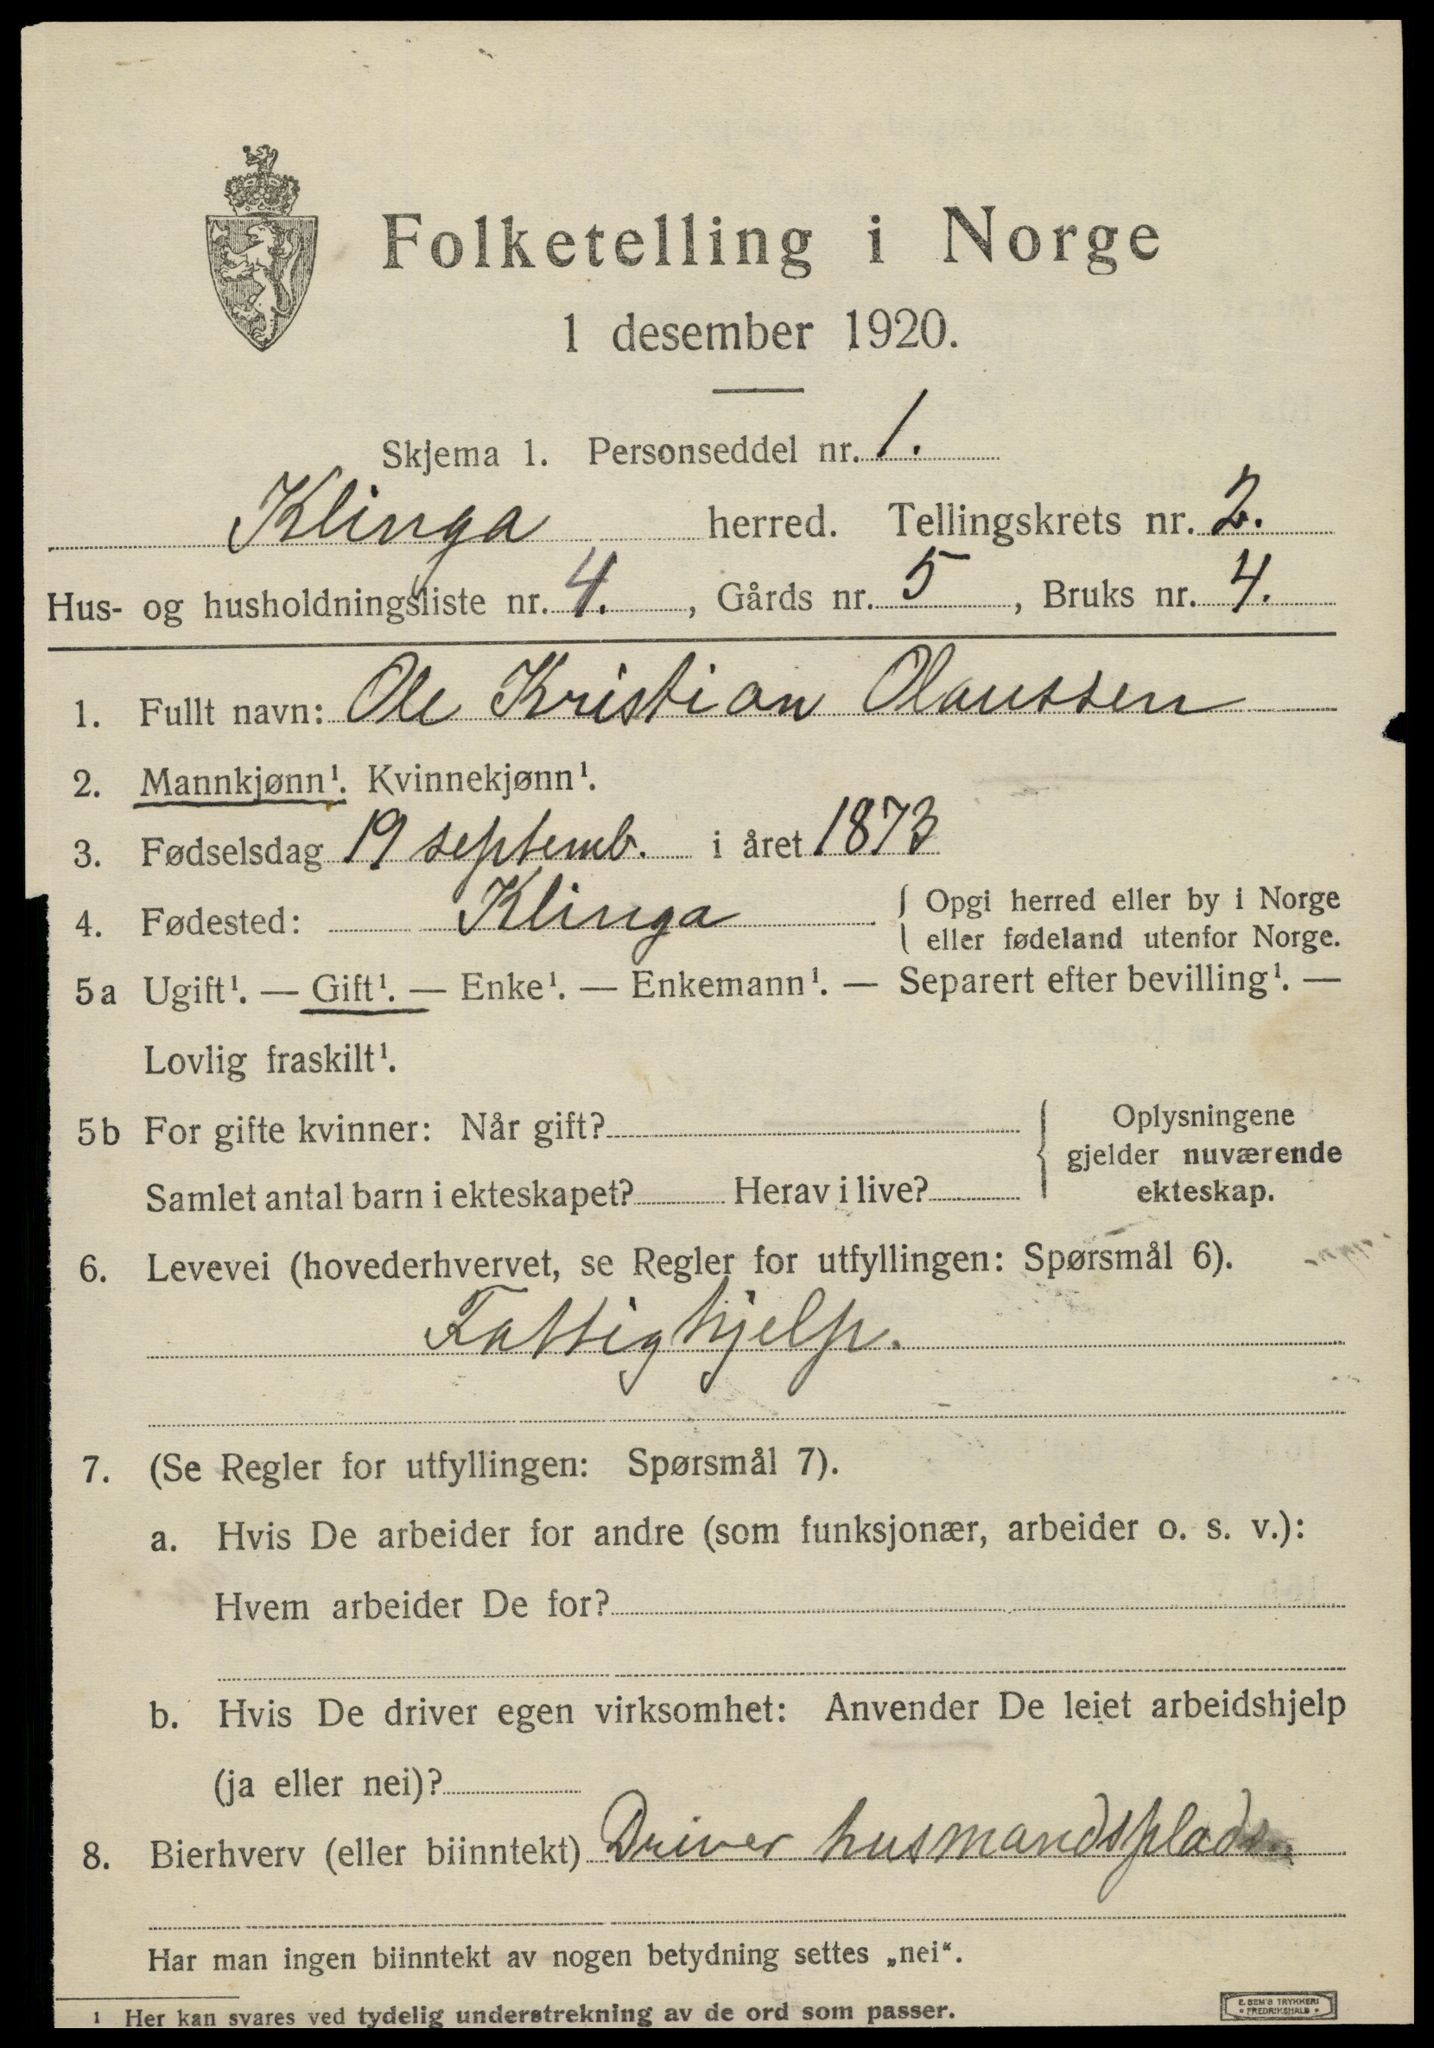 Folketelling i Norge
1 desember 1920.
Skjema 1. Personseddel nr. 1.
Klinga herred. Tellingskrets nr. 2.
Hus- og husholdningsliste nr. 4. , Gårds nr. 5 , Bruks nr. 4.
1. Fullt navn: Ole Kristian Olaussen
2. Mannkjønn¹. Kvinnekjønn¹.
3. Fødselsdag 19 septemb. i året 1873
4. Fødested: Klinga { Opgi herred eller by i Norge
eller fødeland utenfor Norge.
5a Ugift¹. — Gift¹. — Enke¹. — Enkemann¹. — Separert efter bevilling¹. —
Lovlig fraskilt¹.
5b For gifte kvinner: Når gift?
Samlet antal barn i ekteskapet? Herav i live?
Oplysningene
gjelder nuværende
ekteskap.
6. Levevei (hovederhvervet, se Regler for utfyllingen: Spørsmål 6).
Fattighjelp.
7. (Se Regler for utfyllingen: Spørsmål 7).
a. Hvis De arbeider for andre (som funksjonær, arbeider o. s. v.):
Hvem arbeider De for?
b. Hvis De driver egen virksomhet: Anvender De leiet arbeidshjelp
(ja eller nei)?
8. Bierhverv (eller biinntekt) Driver husmandsplads
Har man ingen biinntekt av nogen betydning settes „nei“.
1 Her kan svares ved tydelig understrekning av de ord som passer.
E. SEM'S TRYKKERI
• FREDRIKSHALD •